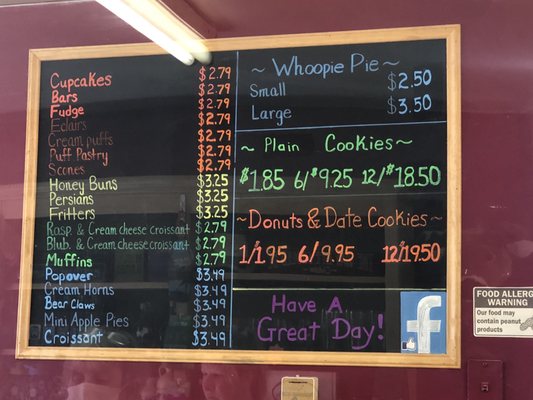 Cupcakes $2.79
Bars $2.79
Fudge $2.79
Eclairs $2.79
Cream puffs $2.79
Puff Pastry $2.79
Scones $2.79
Honey Buns $3.25
Persians $3.25
Fritters $3.25
Rasp. & Cream cheese croissant $2.79
Blub. & Cream cheese croissant $2.79
Muffins $2.79
Popover $3.49
Cream Horns $3.49
Bear Claws $3.49
Mini Apple Pies $3.49
Croissant $3.49
~ Whoopie Pie ~
Small $2.50
Large $3.50
~ Plain Cookies ~
$1.85 6/$9.25 12/$18.50
~Donuts & Date Cookies~
1/1.95 6/9.95 12/19.50
Have A
Great Day!
f
FOOD ALLERG
WARNING
Our food may
contain peanut
products